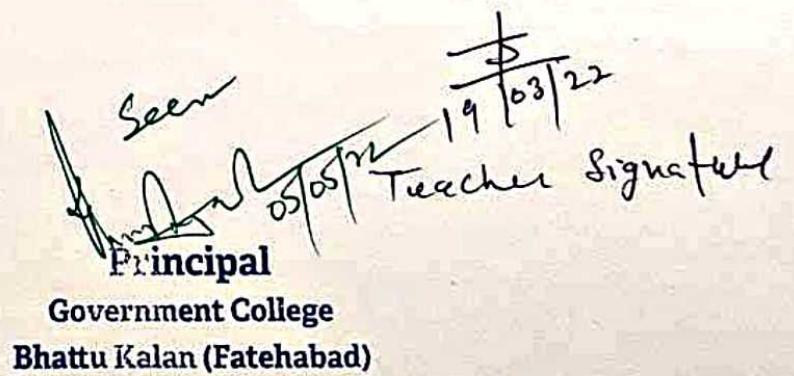 Seen
05/05/22
19/03/22
Teacher Signature
Principal
Government College
Bhattu Kalan (Fatehabad)